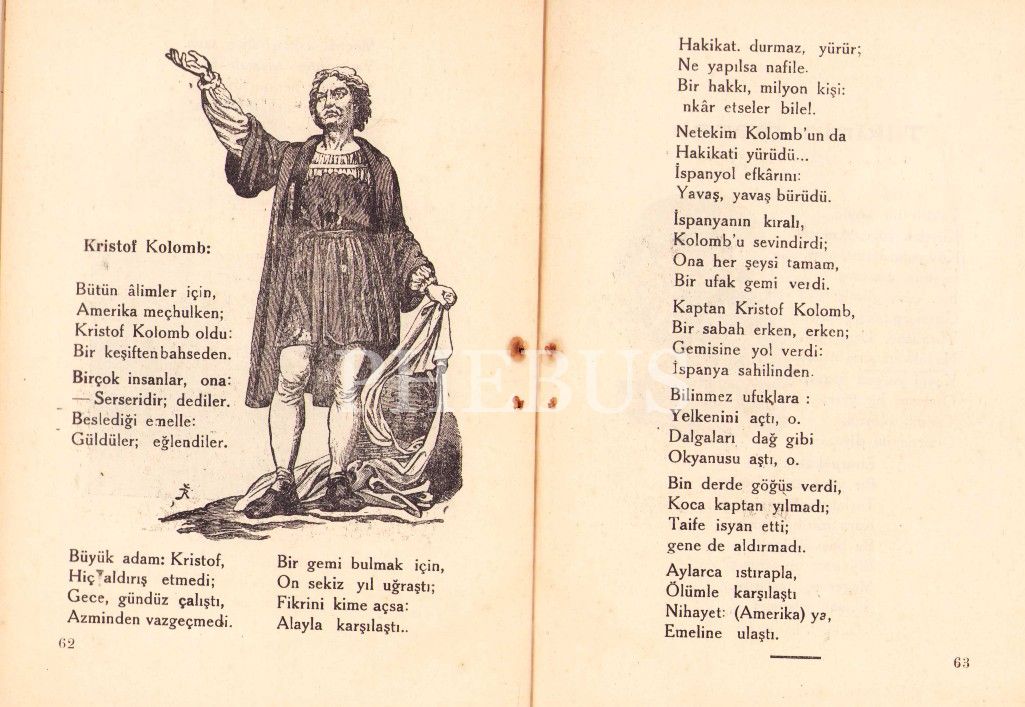 Kristof Kolomb:
Bütün âlimler için,
Amerika meçhulken;
Kristof Kolomb oldu:
Bir keşiften bahseden.
Birçok insanlar, ona:
— Serseridir; dediler.
Beslediği emelle:
Güldüler; eğlendiler.
Büyük adam: Kristof,
Hiç aldırış etmedi;
Gece, gündüz çalıştı,
Azminden vazgeçmedi.
Bir gemi bulmak için,
On sekiz yıl uğraştı;
Fikrini kime açsa:
Alayla karşılaştı..
62
Hakikat. durmaz, yürür;
Ne yapılsa nafile.
Bir hakkı, milyon kişi:
nkâr etseler bile!.
Netekim Kolomb'un da
Hakikati yürüdü...
İspanyol efkârını:
Yavaş, yavaş bürüdü.
İspanyanın kıralı,
Kolomb'u sevindirdi;
Ona her şeysi tamam,
Bir ufak gemi verdi.
Kaptan Kristof Kolomb,
Bir sabah erken, erken;
Gemisine yol verdi:
İspanya sahilinden.
Bilinmez ufuklara :
Yelkenini açtı, o.
Dalgaları dağ gibi
Okyanusu aştı, o.
Bin derde göğüs verdi,
Koca kaptan yılmadı;
Taife isyan etti;
gene de aldırmadı.
Aylarca ıstırapla,
Ölümle karşılaştı
Nihayet: (Amerika) ya,
Emeline ulaştı.
63
PHEBUS